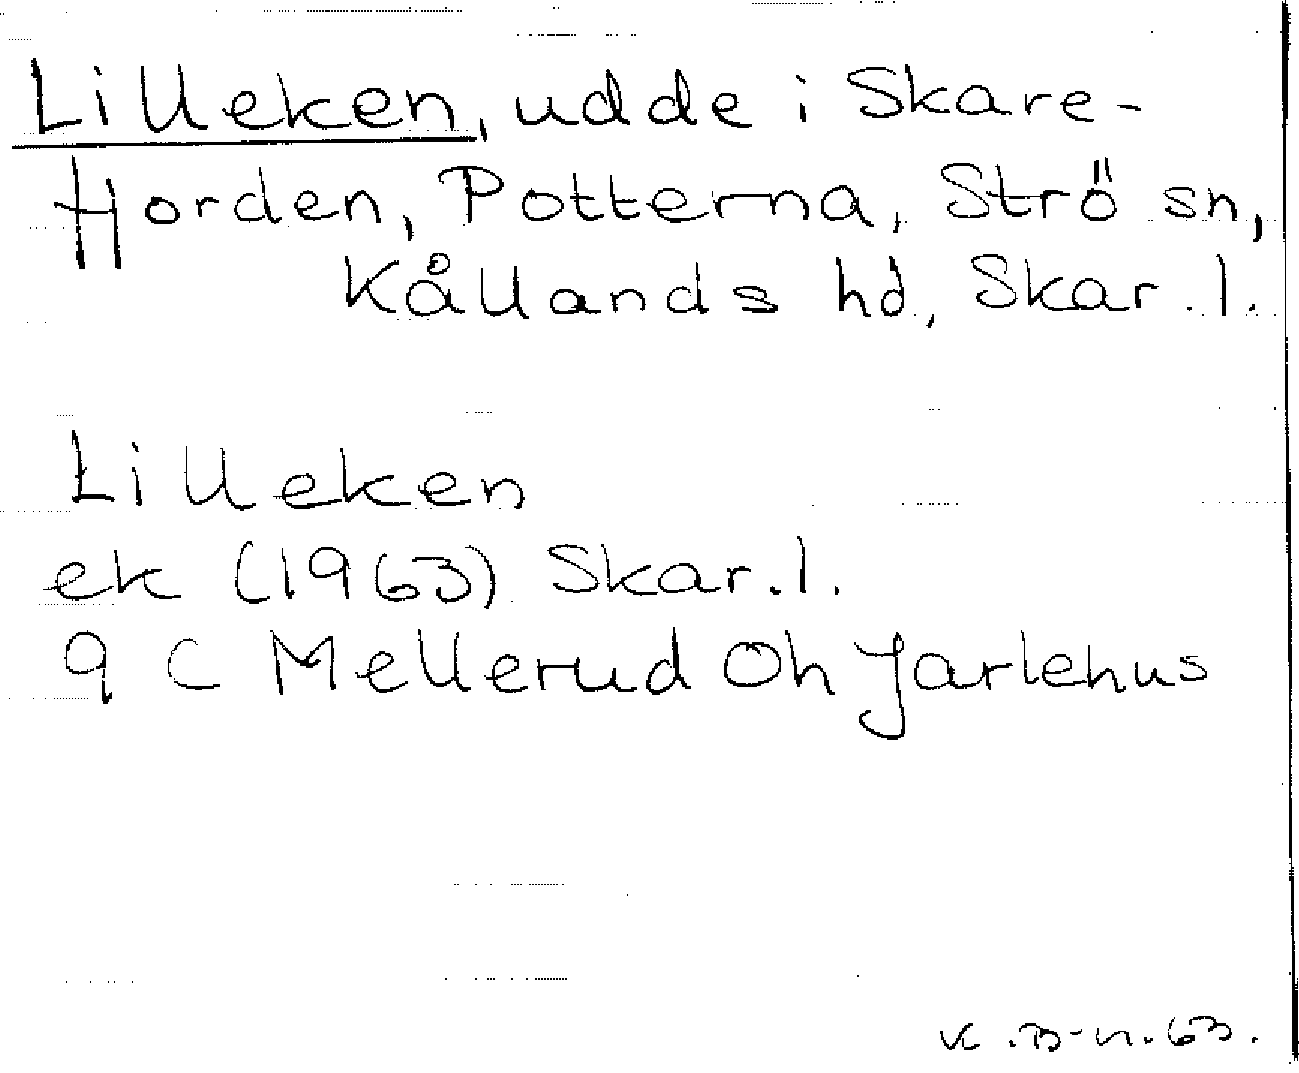 Lilleken, udde i Skare-
fjorden, Potterna, Strö sn,
Kållands hd, Skar. l.
Lilleken
ek (1963) Skar. l.
9 C Mellerud Oh Jarlehus